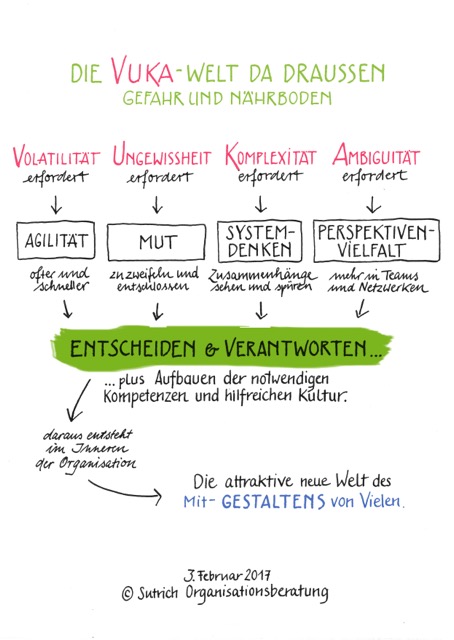 DIE VUKA-WELT DA DRAUSSEN
GEFAHR UND NÄHRBODEN
VOLATILITÄT UNGEWISSHEIT KOMPLEXITÄT AMBIGUITÄT
erfordert erfordert erfordert erfordert
AGILITÄT MUT SYSTEM- PERSPEKTIVEN-
DENKEN VIELFALT
öfter und zu zweifeln und Zusammenhänge mehr in Teams
schneller entschlossen sehen und spüren und Netzwerken
ENTSCHEIDEN & VERANTWORTEN...
...plus Aufbauen der notwendigen
Kompetenzen und hilfreichen Kultur.
daraus entsteht
im Inneren
der Organisation
Die attraktive neue Welt des
Mit-GESTALTENS von Vielen.
3. Februar 2017
© Sutrich Organisationsberatung